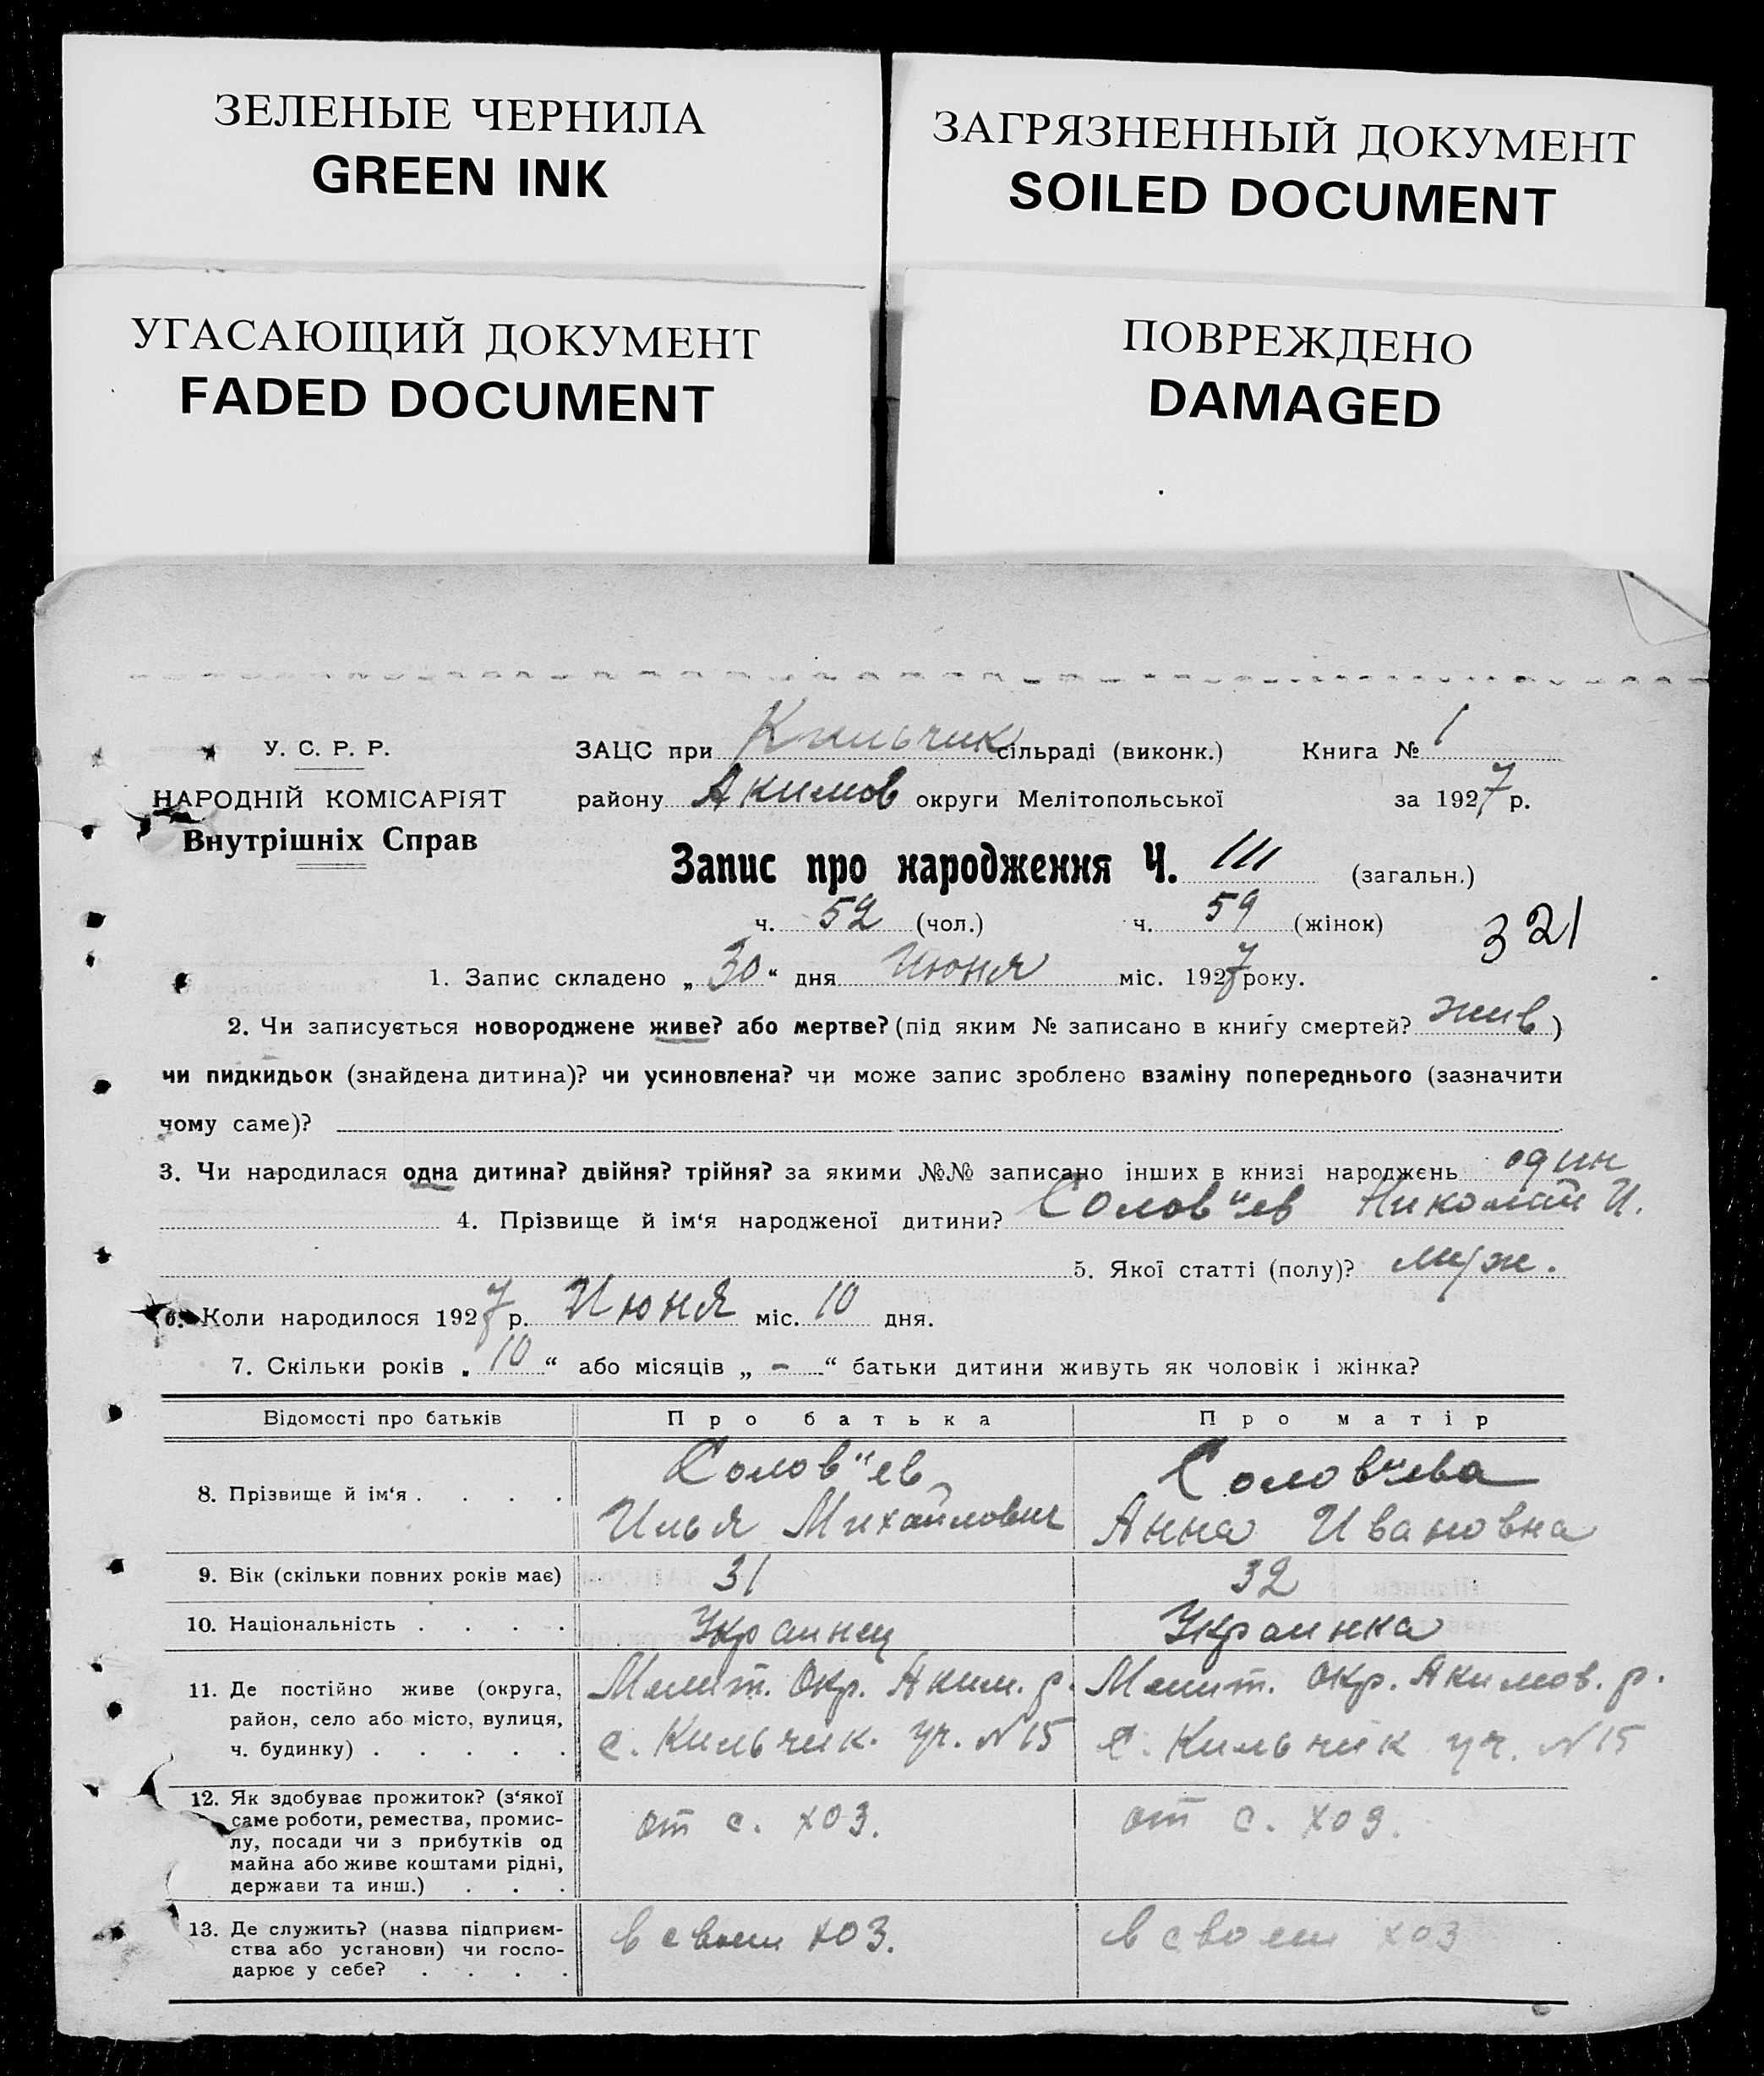 ЗЕЛЕНЫЕ ЧЕРНИЛА
GREEN INK
ЗАГРЯЗНЕННЫЙ ДОКУМЕНТ
SOILED DOCUMENT
УГАСАЮЩИЙ ДОКУМЕНТ
FADED DOCUMENT
ПОВРЕЖДЕНО
DAMAGED
У. С. Р. Р.
НАРОДНІЙ КОМІСАРІЯТ
Внутрішніх Справ
ЗАЦС при Кильчик сільраді (виконк.) Книга № 1
району Акимов округи Мелітопольської за 1927 р.
Запис про народження Ч. 111 (загальн.)
ч. 52 (чол.) ч. 59 (жінок)
321
1. Запис складено „30“ дня Июня міс. 1927 року.
2. Чи записується новороджене живе? або мертве? (під яким № записано в книгу смертей? жив)
чи пидкидьок (знайдена дитина)? чи усиновлена? чи може запис зроблено взаміну попереднього (зазначити
чому саме)?
3. Чи народилася одна дитина? двійня? трійня? за якими №№ записано інших в книзі народжень один
4. Прізвище й ім‘я народженої дитини? Солов"ев Николай И.
5. Якої статті (полу)? муж.
6. Коли народилося 1927 р. Июня міс. 10 дня.
7. Скільки років „10“ або місяців „-“ батьки дитини живуть як чоловік і жінка?
Відомості про батьків Про батька Про матір
8. Прізвище й ім‘я . . . .
Солов"ев
Илья Михайлович
Солов"ева
Анна Ивановна
9. Вік (скільки повних років має) 31 32
10. Національність . . . . Украинец Украинка
11. Де постійно живе (округа,
район, село або місто, вулиця,
ч. будинку) . . . . .
Мелит. Окр. Аким. р.
с. Кильчик. уч. N 15
Мелит. Окр. Акимов. р.
с. Кильчик уч. N 15
12. Як здобуває прожиток? (з‘якої
саме роботи, ремества, промис-
лу, посади чи з прибутків од
майна або живе коштами рідні,
держави та инш.) . . .
от с. хоз.
от с. хоз.
13. Де служить? (назва підприєм-
ства або установи) чи госпо-
дарює у себе? . . . .
в своем хоз.
в своем хоз